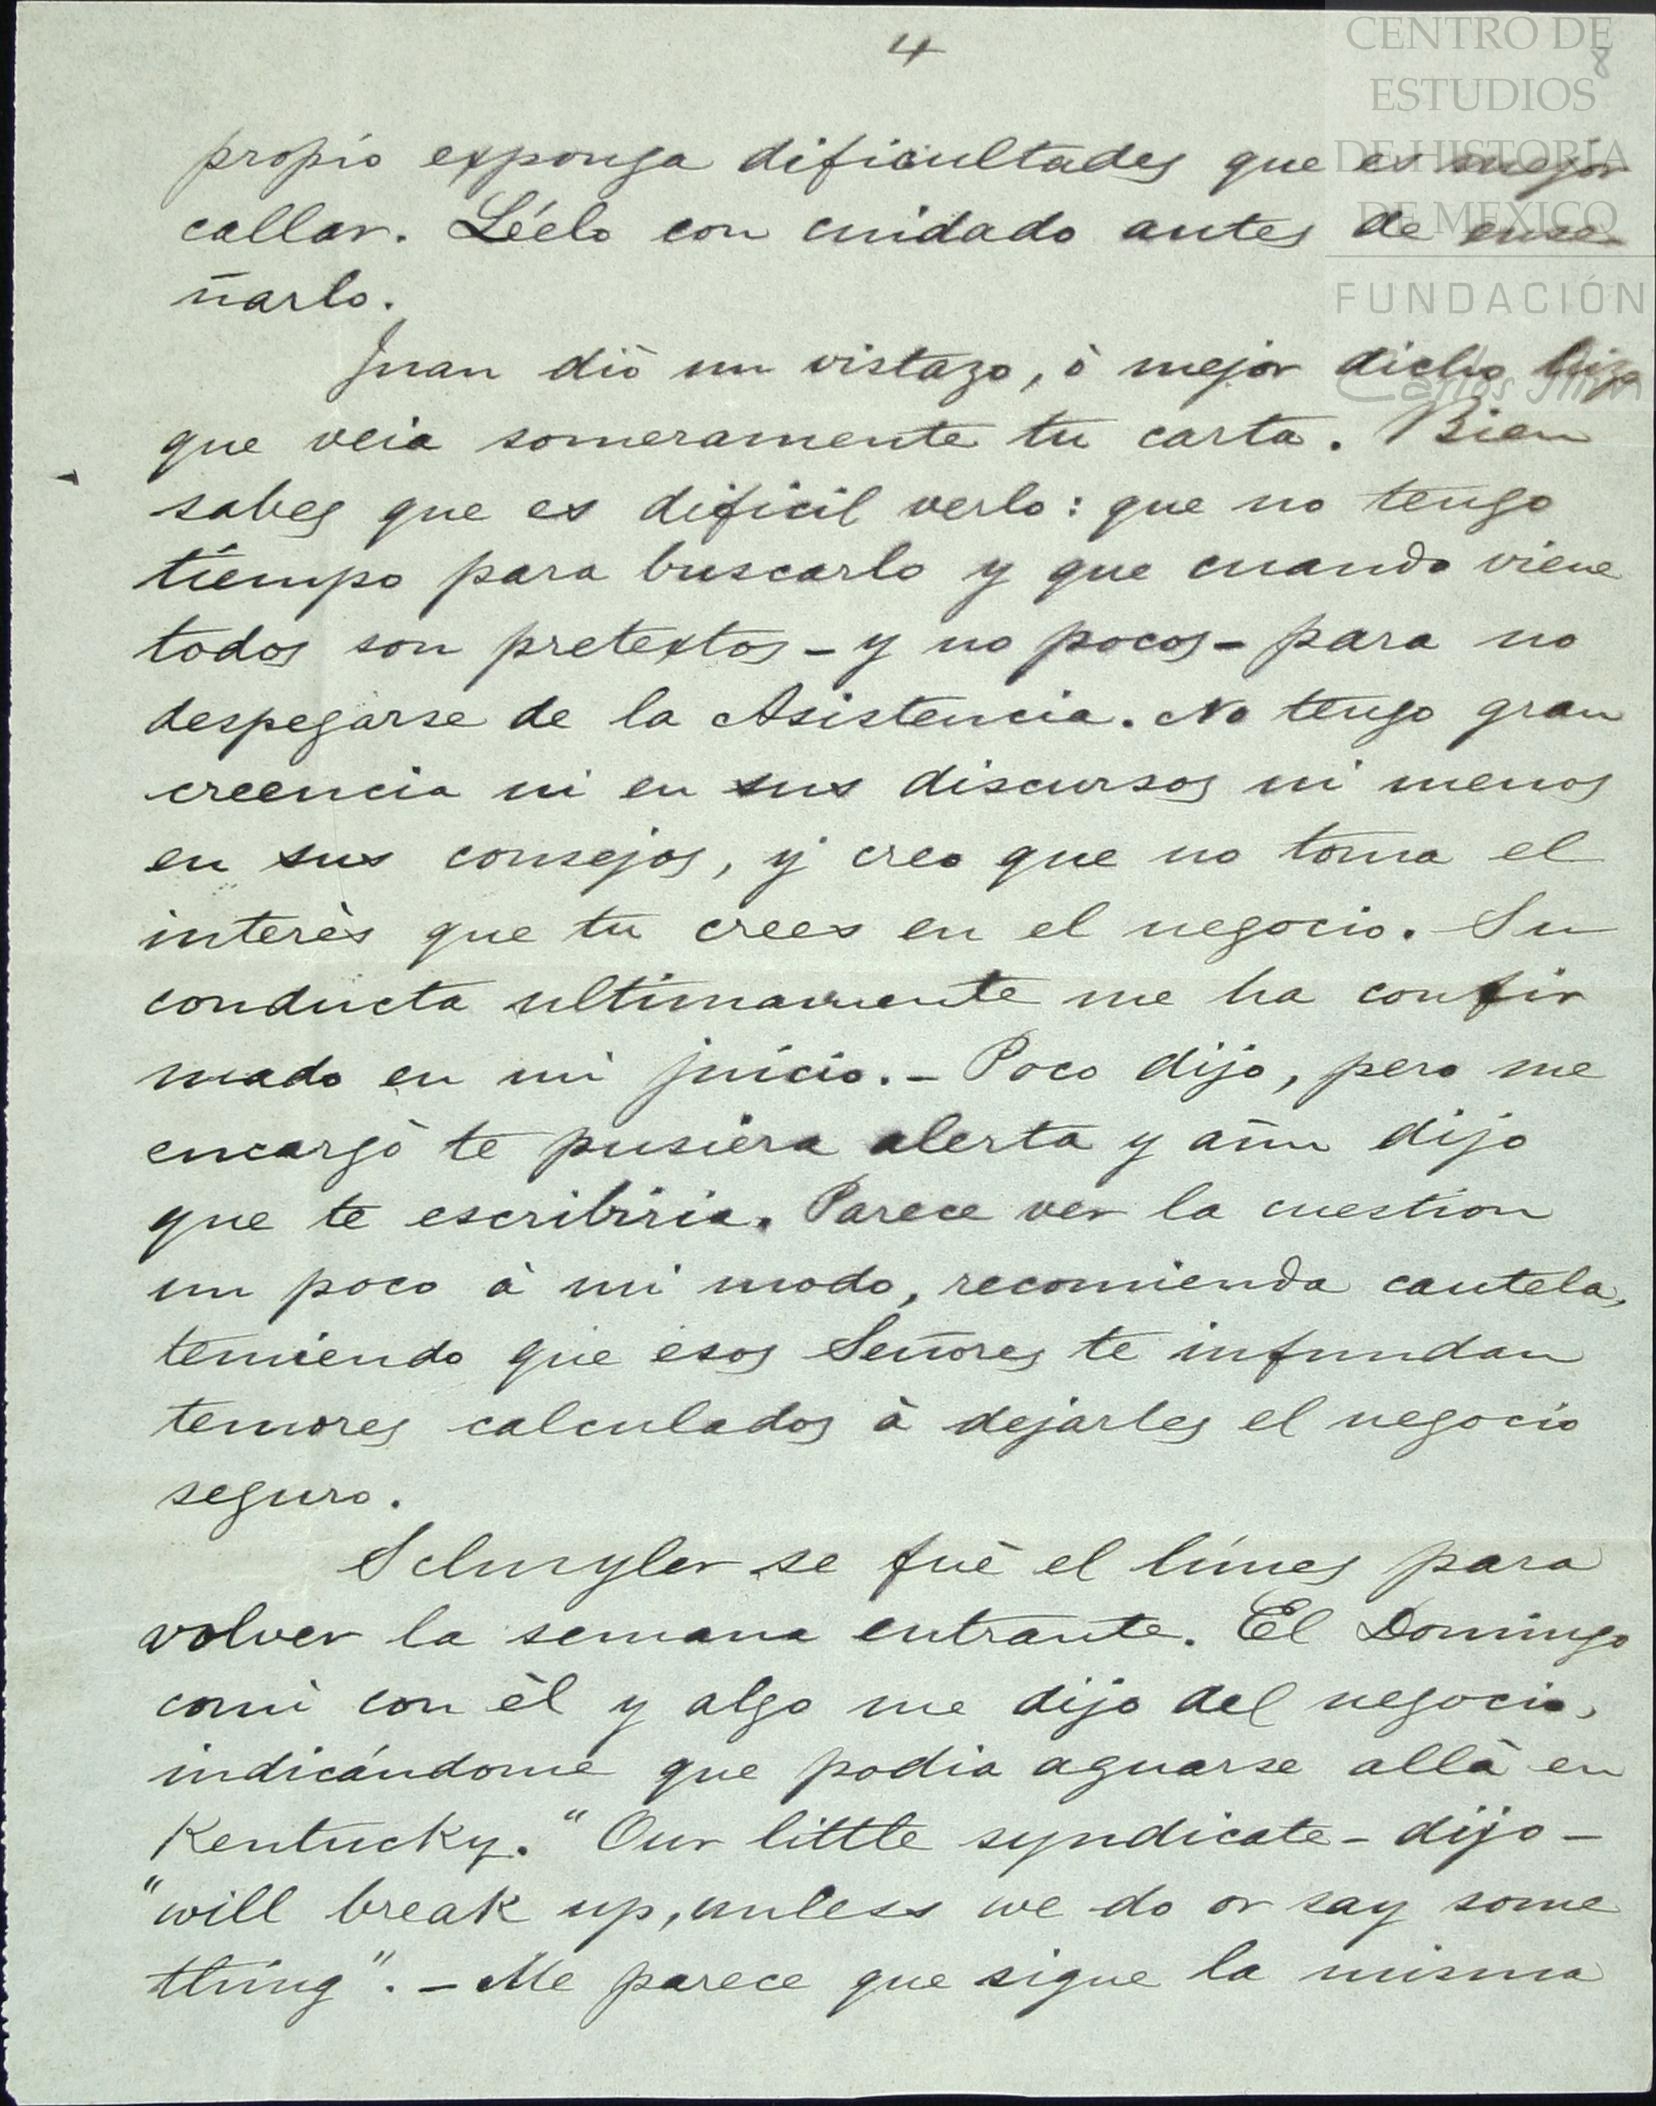 4
8
CENTRO DE
ESTUDIOS
DE HISTORIA
DE MEXICO
FUNDACIÓN
Carlos Slim
propio exponga dificultades que es mejor
callar. Léelo con cuidado antes de ense-
ñarlo.
Juan diò un vistazo, ò mejor dicho hizo
que veia someramente tu carta. Bien
sabes que es dificil verlo: que no tengo
tiempo para buscarlo y que cuando viene
todos son pretextos - y no pocos - para no
despegarse de la Asistencia. No tengo gran
creencia ni en sus discursos ni menos
en sus consejos, y creo que no toma el
interès que tu crees en el negocio. Su
conducta ultimamente me ha confir
mado en mi juicio. - Poco dijo, pero me
encargò te pusiera alerta y aun dijo
que te escribiria. Parece ver la cuestion
un poco à mi modo, recomienda cautela,
temiendo que esos Señores te infundan
temores calculados à dejarles el negocio
seguro.
Schuyler se fuè el lúnes para
volver la semana entrante. El Domingo
comì con èl y algo me dijo del negocio,
indicándome que podia aguarse allà en
Kentucky. "Our little syndicate - dijo -
"will break up, unless we do or say some
thing". - Me parece que sigue la misma